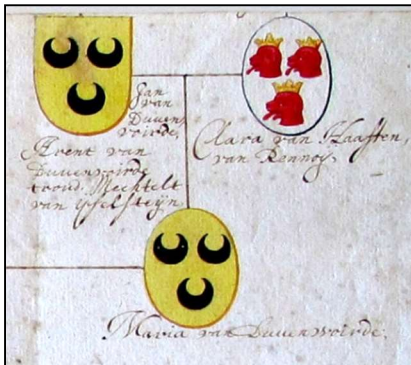 Jan
van
Duuen
voirde,
Arent van
Duuenvoirde
troud. Mechtelt
van ysselsteÿn
Clara van Haaften,
van Rennoy.
Maria van Duuenvoirde.